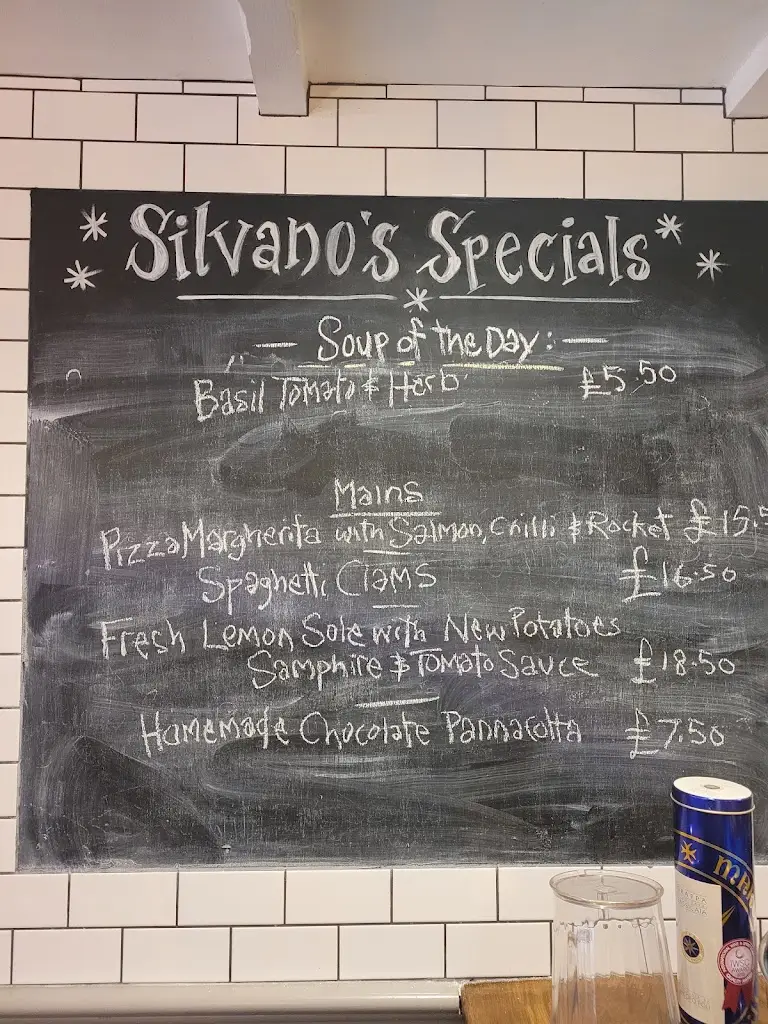 Silvano's Specials
Soup of the Day:
Basil Tomato & Herb £5.50
Mains
Pizza Margherita with Salmon, Chilli & Rocket £15.5
Spaghetti Clams £16.50
Fresh Lemon Sole with New Potatoes
Samphire & Tomato Sauce £18.50
Homemade Chocolate Pannacotta £7.50
IWSC